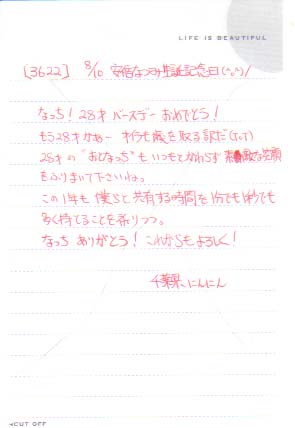 LIFE IS BEAUTIFUL
[3622] 8/10 安倍なつみ生誕記念日(^o^)/
なっち!28才バースデーおめでとう!
もう28才かぁー オイラも歳を取る訳だ(T▽T)
28才の"おとなっち"もいつもとかわらず素敵な笑顔
をふりまいて下さいね。
この1年も僕らと共有する時間を1分でも1秒でも
多く持てることを祈りつつ。
なっちありがとう!これからもよろしく!
千葉県、にんにん
◂CUT OFF